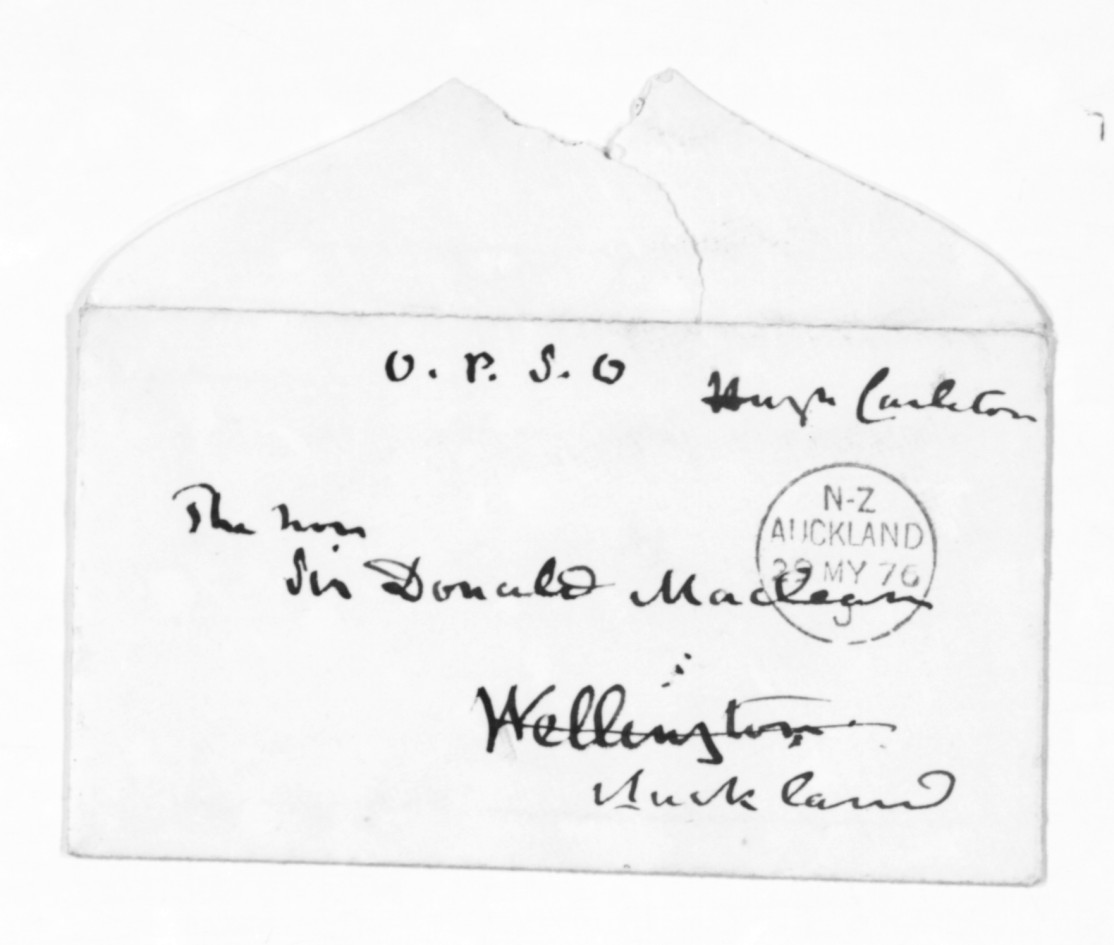 O. P. S. O
Hugh Carleton
The Hon
Sir Donald Maclean
N-Z
AUCKLAND
29 MY 76
J
Wellington
Auckland